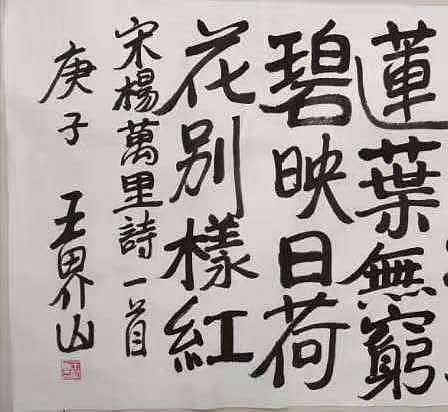 蓮葉無窮
碧映日荷
花別樣紅
宋楊萬里詩一首
庚子 王界山